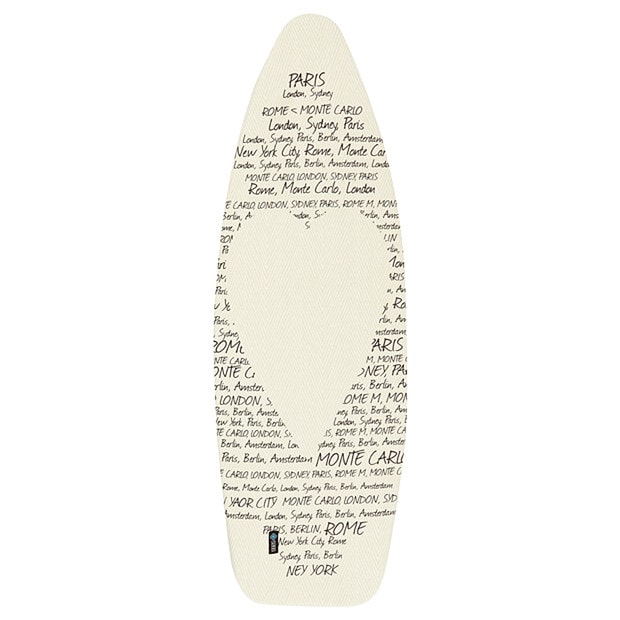 PARIS
London, Sydney
ROME < MONTE CARLO
London, Sydney, Paris
London, Sydney, Paris, Berlin, Amsterdam
New York City, Rome, Monte Car
London, Sydney, Paris, Berlin, Amsterdam, London
MONTE CARLO, LONDON, SYDNEY, PARIS
Rome, Monte Carlo, London
TE CARLO, LONDON, SYDNEY, PARIS, ROME M, MON
Berlin, A
Paris, Berlin
LIN
Mon
PARIS
Ro
New Y
Amsterdam
Sydne
ROM
ARIS
MONTE CAR
M, MONTE CAR
ONTE C
NEY, PAR
Berlin, Amster
aris, Berlin
O LONDON, S
OME M, MO
Paris, Berlin, Amste
ney, Paris, Berlin
New York, Paris, Ber
Berlin, Amsterda
TE CARLO, LONDON, SY
ROME M, MONTE CA
Berlin, Amsterdam, Lon
Sydney, Paris, Berlin
Paris, Berlin, Amsterdam MONTE CARL
E CARLO, LONDON, SYDNEY, PARIS, ROME M, MONTE CA
Rome, Monte Carlo, London, Sydney, Paris, Berlin, Amsterdam
YAOR CITY MONTE CARLO, LONDON, SYD
Amsterdam, London, Sydney, Paris, Berlin, Amsterda
PARIS, BERLIN, ROME
New York City, Rome
Sydney, Paris, Berlin
NEY YORK